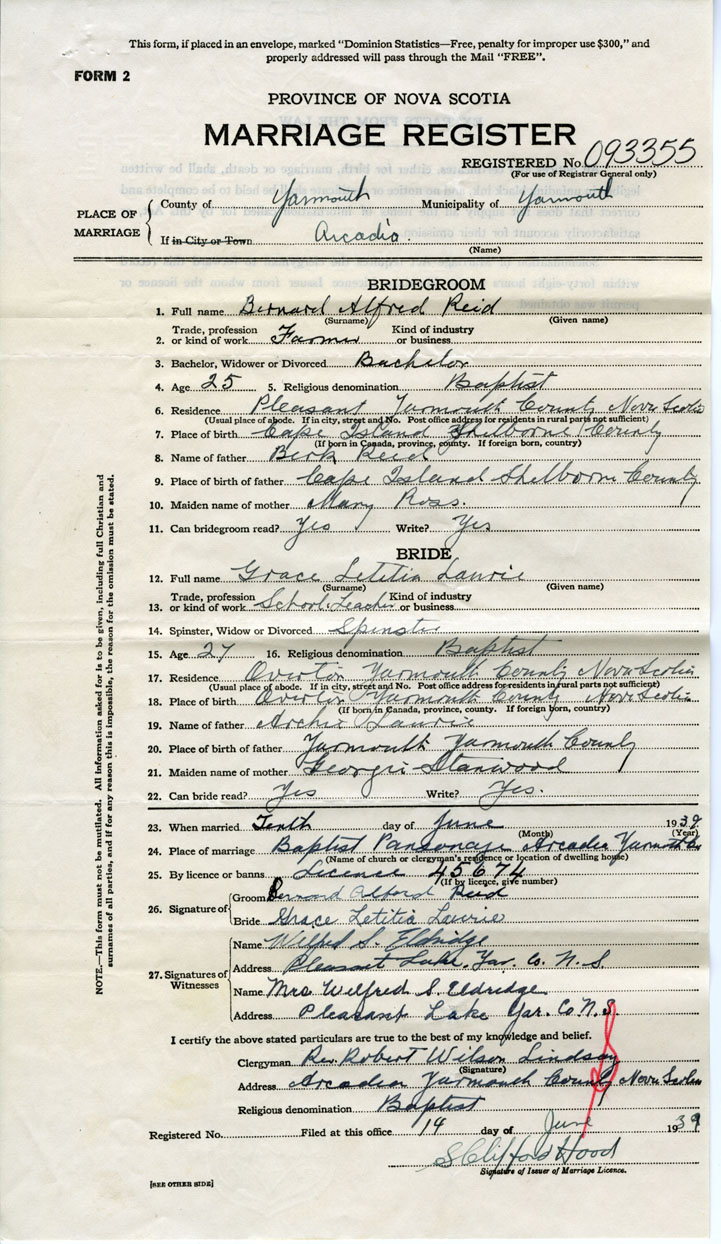 This form, if placed in an envelope, marked "Dominion Statistics—Free, penalty for improper use $300," and
properly addressed will pass through the Mail "FREE".
FORM 2
PROVINCE OF NOVA SCOTIA
MARRIAGE REGISTER
REGISTERED No. 093355
(For use of Registrar General only)
PLACE OF MARRIAGE
County of Yarmouth Municipality of Yarmouth
If in City or Town Arcadia.
(Name)
BRIDEGROOM
1. Full name Bernard Alfred Reid
(Surname) (Given name)
2. Trade, profession or kind of work Farmer Kind of industry or business
3. Bachelor, Widower or Divorced Bachelor
4. Age 25 5. Religious denomination Baptist
6. Residence Pleasant Yarmouth County Nova Scotia
(Usual place of abode. If in city, street and No. Post office address for residents in rural parts not sufficient)
7. Place of birth Cape Island Shelborne County
(If born in Canada, province, county. If foreign born, country)
8. Name of father Reid
9. Place of birth of father Cape Island Shelborn County
10. Maiden name of mother Mary Ross.
11. Can bridegroom read? Yes Write? Yes
BRIDE
12. Full name Grace Letitia Laurie
(Surname) (Given name)
13. Trade, profession or kind of work School Teacher Kind of industry or business
14. Spinster, Widow or Divorced Spinster
15. Age 27 16. Religious denomination Baptist
17. Residence Overton Yarmouth County Nova Scotia
(Usual place of abode. If in city, street and No. Post office address for residents in rural parts not sufficient)
18. Place of birth Overton Yarmouth County Nova Scotia
(If born in Canada, province, county. If foreign born, country)
19. Name of father Archie Laurie
20. Place of birth of father Yarmouth Yarmouth County
21. Maiden name of mother Georgie Stanwood
22. Can bride read? Yes Write? Yes.
23. When married Tenth day of June 1939
(Month) (Year)
24. Place of marriage Baptist Parsonage Arcadia Yarmouth Co
(Name of church or clergyman's residence or location of dwelling house)
25. By licence or banns Licence 45674
(If by licence, give number)
26. Signature of
Groom Bernard Alford Reid
Bride Grace Letitia Laurie
27. Signatures of Witnesses
Name Wilfred S. Eldridge
Address Pleasant Lake, Yar. Co. N. S.
Name Mrs Wilfred S. Eldridge
Address Pleasant Lake Yar. Co N.S.
I certify the above stated particulars are true to the best of my knowledge and belief.
Clergyman Rev. Robert Wilson Lindsay
(Signature)
Address Arcadia Yarmouth County Nova Scotia
Religious denomination Baptist
Registered No. Filed at this office 14 day of June 1939
S Clifford Hood
Signature of Issuer of Marriage Licence.
[SEE OTHER SIDE]
NOTE.—This form must not be mutilated. All information asked for is to be given, including full Christian and
surnames of all parties, and if for any reason this is impossible, the reason for the omission must be stated.